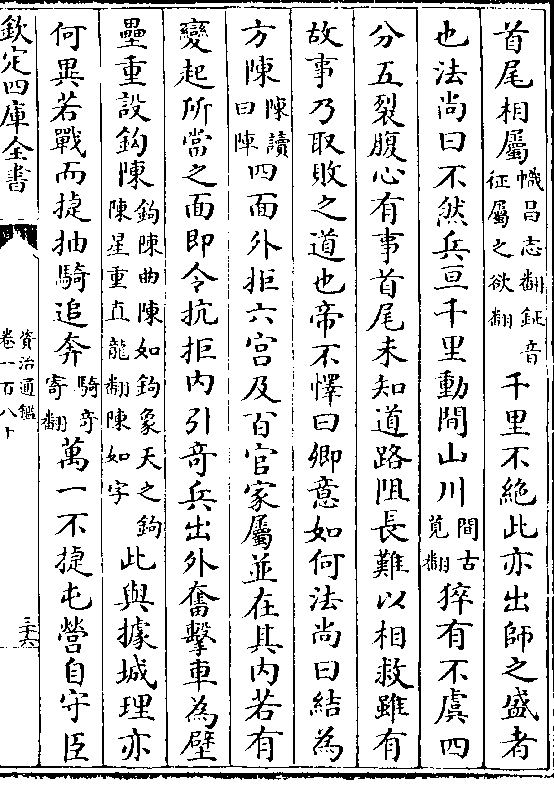 首尾相屬幟昌志翻鉦音征屬之欲翻千里不絶此亦出師之盛者
也法尚曰不然兵亘千里動間山川間古莧翻猝有不虞四
分五裂腹心有事首尾未知道路阻長難以相救雖有
故事乃取敗之道也帝不懌曰卿意如何法尚曰結為
方陳陳讀曰陣四面外拒六宫及百官家屬並在其内若有
變起所當之面即令抗拒内引奇兵出外奮擊車為壁
壘重設鈎陳鈎陳曲陳如鈎象天之鈎陳星重直龍翻陳如字此與據城理亦
何異若戰而捷抽騎追奔騎奇寄翻萬一不捷屯營自守臣
欽定四庫全書
資治通鑑
卷一百八十
三六